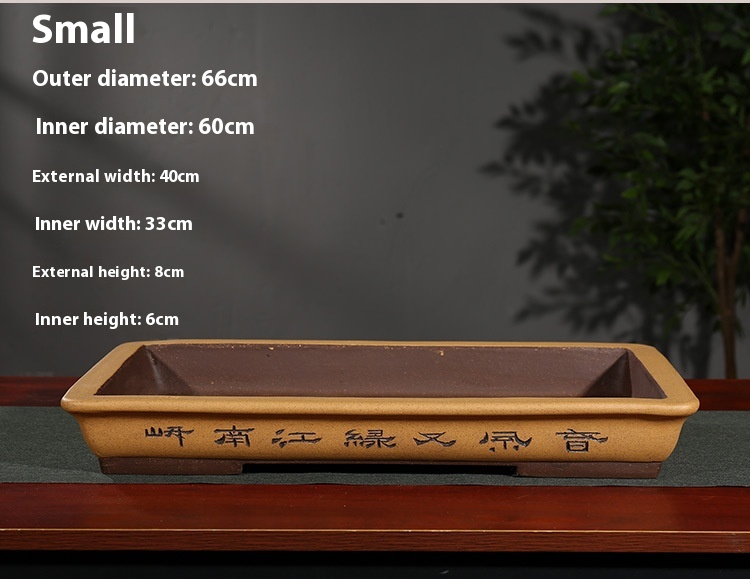 Small
Outer diameter: 66cm
Inner diameter: 60cm
External width: 40cm
Inner width: 33cm
External height: 8cm
Inner height: 6cm
春風又緑江南岸